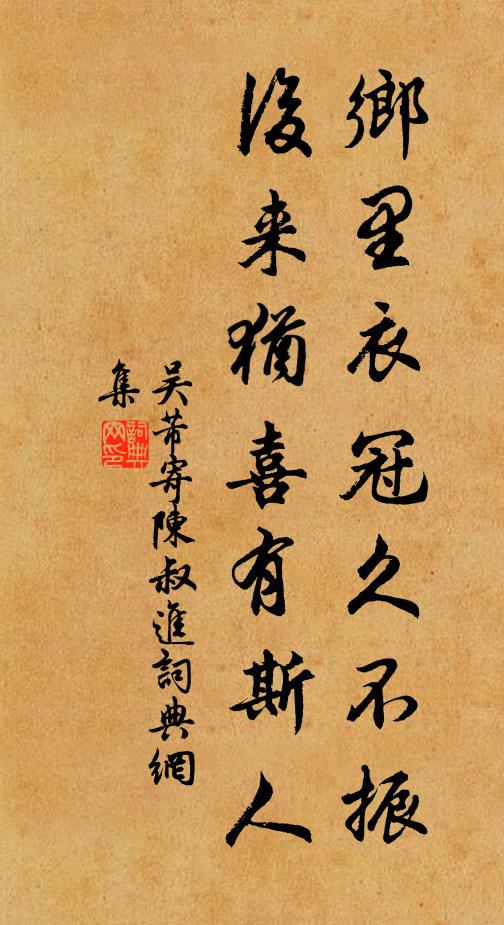 鄉里衣冠久不振
後来猶喜有斯人
吴芾寄陳叔進詞典網
集
詞典網印